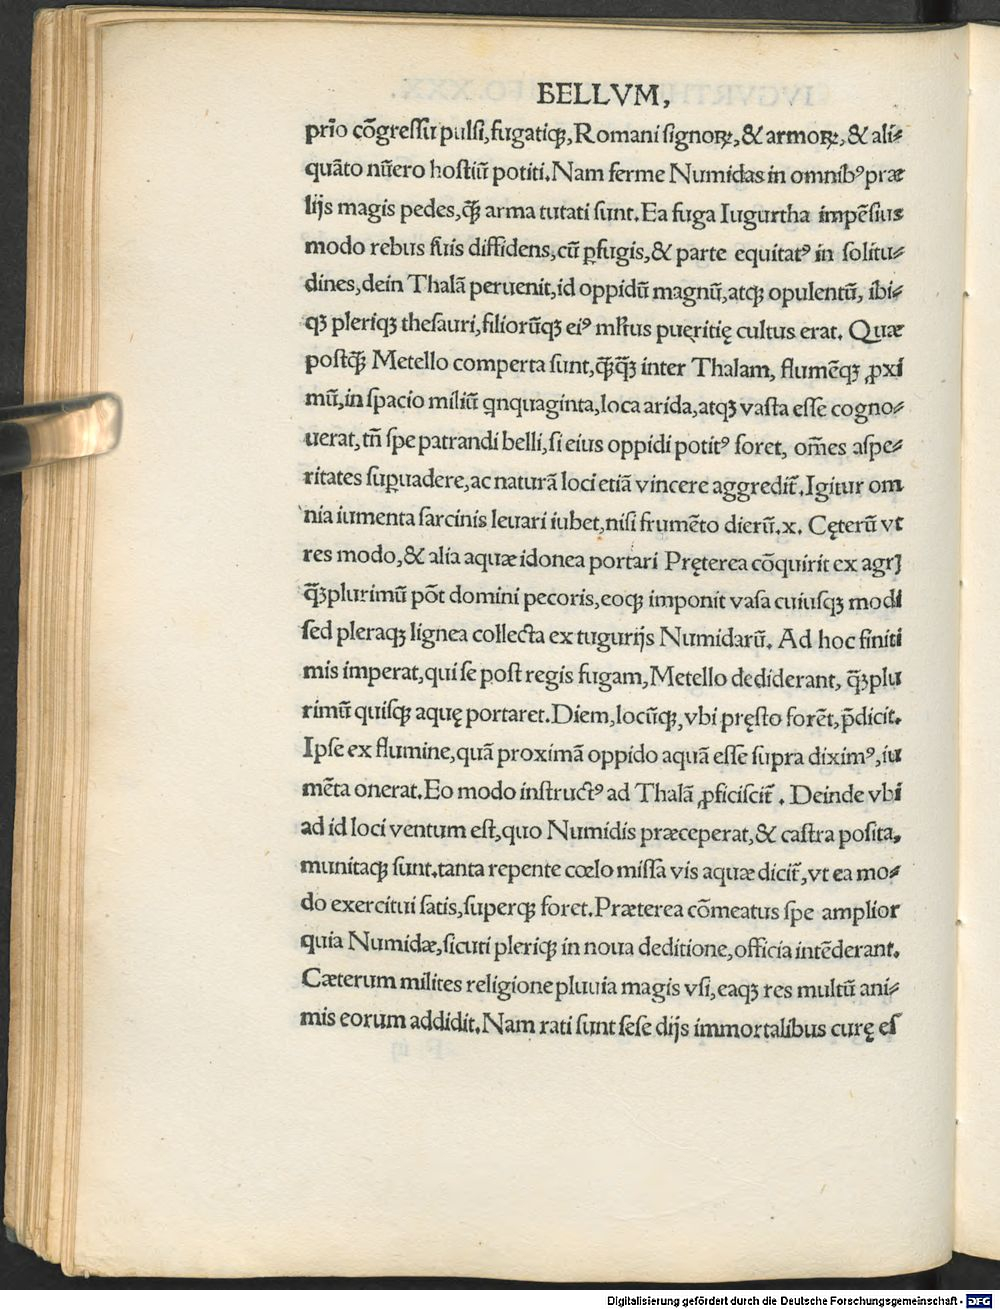 BELLVM,
prīo cōgressu pulsi, fugatiq;, Romani signoꝝ, & armoꝝ, & ali⸗
quāto nūero hostiū potiti. Nam ferme Numidas in omnibꝰ præ
lijs magis pedes, q̄ꝫ arma tutati sunt. Ea fuga Iugurtha impēsius
modo rebus suis diffidens, cū ꝑfugis, & parte equitatꝰ in solitu⸗
dines, dein Thalā peruenit, id oppidū magnū, atqꝫ opulentū, ibi⸗
qꝫ pleriqꝫ thesauri, filiorūqꝫ eiꝰ ml̄tus puęritię cultus erat. Quæ
postq̄ꝫ Metello comperta sunt, q̄ꝫq̄ꝫ inter Thalam, flumēqꝫ ꝓxi
mū, in spacio miliū qnquaginta, loca arida, atqꝫ vasta esse cogno⸗
uerat, tn̄ spe patrandi belli, si eius oppidi potitꝰ foret, om̄es aspe⸗
ritates suꝑuadere, ac naturā loci etiā vincere aggredit̄. Igitur om
nia iumenta sarcinis leuari iubet, nisi frumēto dierū. x. Cęterū vt
res modo, & alia aquæ idonea portari Pręterea cōquirit ex agrꝭ
q̄ꝫplurimū pōt domini pecoris, eoqꝫ imponit vasa cuiusqꝫ modi
sed pleraqꝫ lignea collecta ex tugurijs Numidarū. Ad hoc finiti
mis imperat, qui se post regis fugam, Metello dediderant, q̄ꝫplu
rimū quisqꝫ aquę portaret. Diem, locūqꝫ, vbi pręsto forēt, p̄dicit.
Ipse ex flumine, quā proximā oppido aquā esse supra diximꝰ, iu
mēta onerat. Eo modo instructꝰ ad Thalā ꝓficiscit̄. Deinde vbi
ad id loci ventum est, quo Numidis præceperat, & castra posita,
munitaqꝫ sunt. tanta repente cœlo missa vis aquæ dicit̄, vt ea mo⸗
do exercitui satis, superqꝫ foret. Præterea cōmeatus spe amplior
quia Numidæ, sicuti pleriqꝫ in noua deditione, officia intēderant.
Cæterum milites religione pluuia magis vsi, eaqꝫ res multū ani⸗
mis eorum addidit. Nam rati sunt sese dijs immortalibus curę es
Digitalisierung gefördert durch die Deutsche Forschungsgemeinschaft - DFG